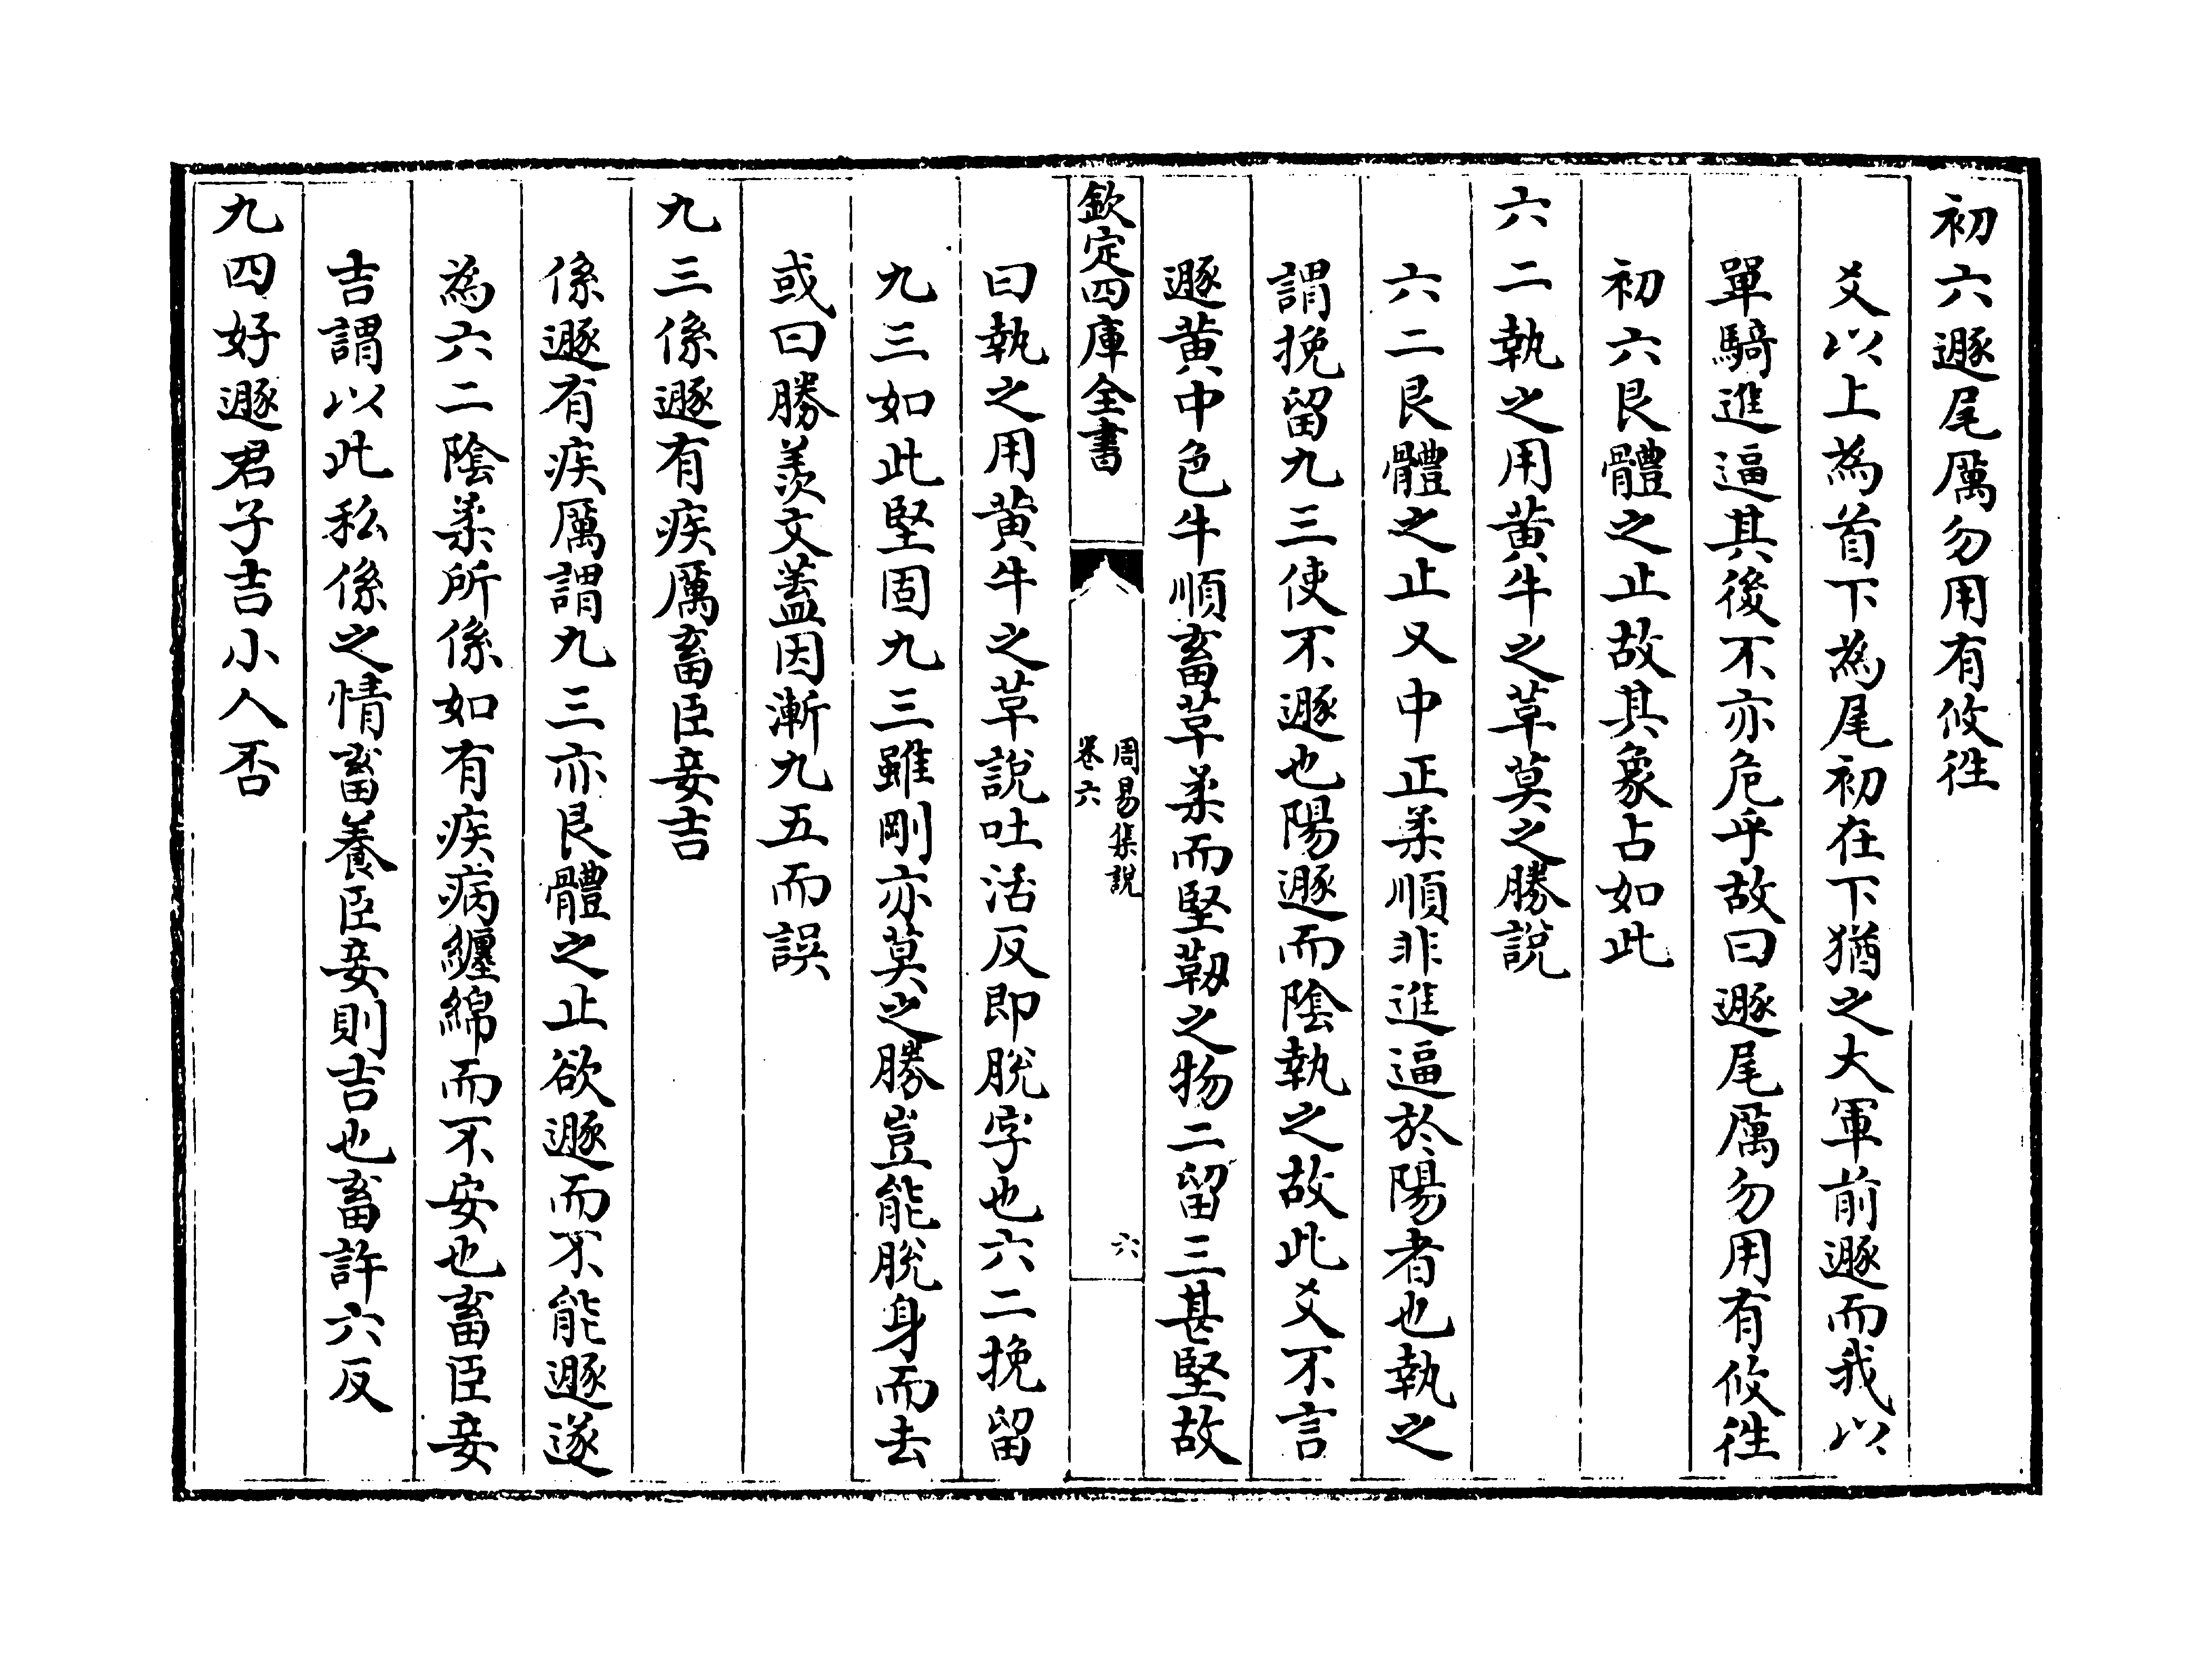 初六遯尾厲勿用有攸徃
爻以上為首下為尾初在下猶之大軍前遯而我以
單騎進逼其後不亦危乎故曰遯尾厲勿用有攸徃
初六艮體之止故其象占如此
六二執之用黄牛之革莫之勝說
六二艮體之止又中正柔順非進逼於陽者也執之
謂挽留九三使不遯也陽遯而陰執之故此爻不言
遯黄中色牛順畜革柔而堅韌之物二留三甚堅故
欽定四庫全書
周易集說
卷六
六
曰執之用黄牛之革說吐活反即脫字也六二挽留
九三如此堅固九三雖剛亦莫之勝豈能脫身而去
或曰勝羨文蓋因漸九五而誤
九三係遯有疾厲畜臣妾吉
係遯有疾厲謂九三亦艮體之止欲遯而不能遯遂
為六二陰柔所係如有疾病纏綿而不安也畜臣妾
吉謂以此私係之情畜養臣妾則吉也畜許六反
九四好遯君子吉小人否